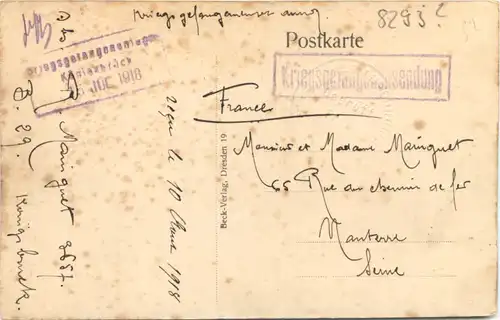 Kriegsgefangenensendung
8293
Postkarte
Kriegsgefangenensendung
France
Monsieur et Madame Mainguet
65 Rue du chemin de fer
Nanterre
Seine
Beck-Verlag, Dresden 19
reçu le 10 Aout 1918
Kriegsgefangenenlager
Königsbrück
JUL. 1918
Abs.
Mainguet 3657.
B. 29. Königsbrück.